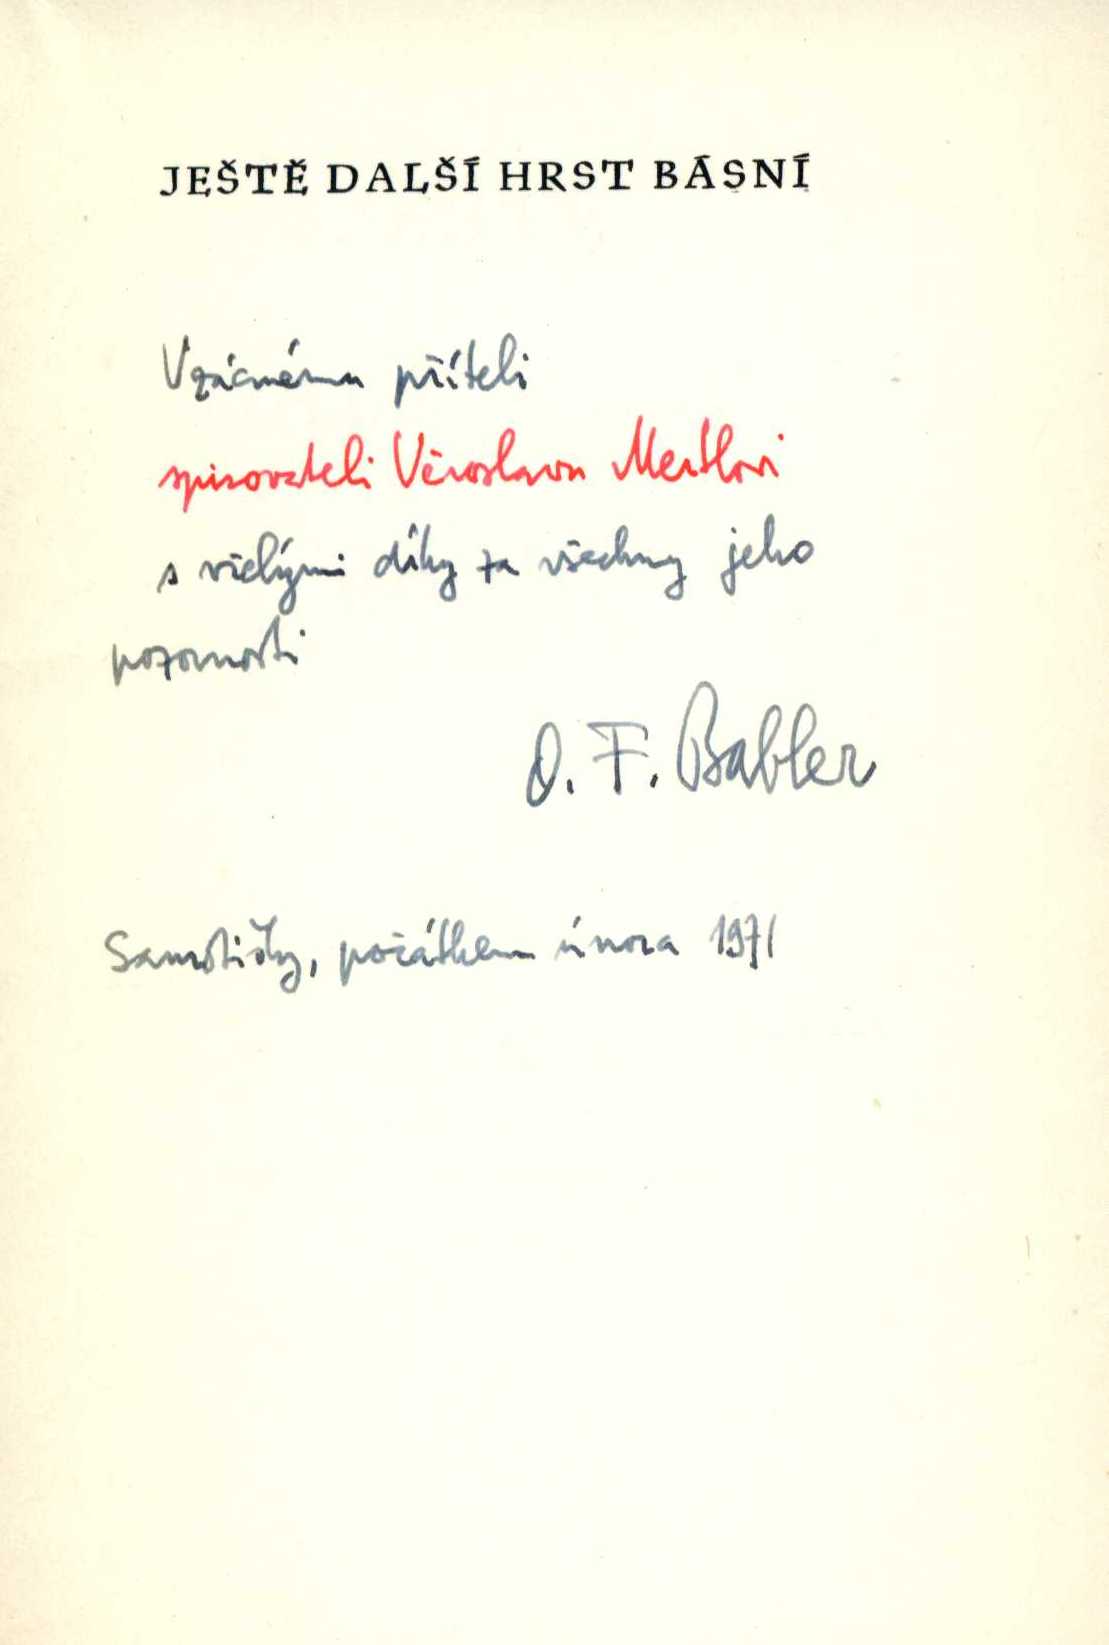 JEŠTĚ DALŠÍ HRST BÁSNÍ
Vzácnému příteli
spisovateli Věroslavu Mertlovi
s vřelými díky za všechny jeho
pozornosti
O. F. Babler
Samotišky, počátkem února 1971